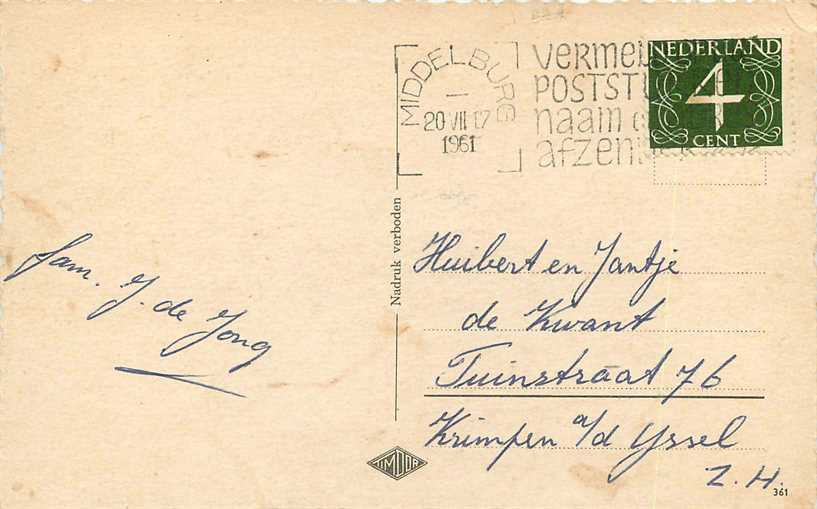 MIDDELBURG
20 VII 17
1961
VERMEL
POSTST
naam
afzen
NEDERLAND
4
CENT
Nadruk verboden
fam. J. de Jong
Huibert en Jantje
de Kwant
Tuinstraat 76
Krimpen a/d Yssel
Z. H.
JIMDOR
361